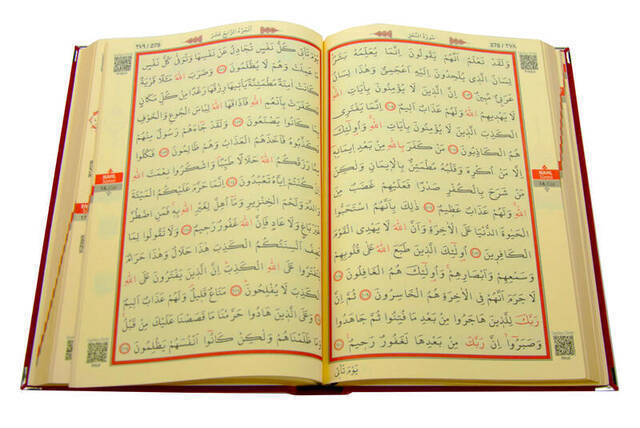 سُورَةُ النَّحْلِ
278 / ٢٧٨
وَلَقَدْ نَعْلَمُ اَنَّهُمْ يَقُولُونَ اِنَّمَا يُعَلِّمُهُ بَشَرٌ
لِسَانُ الَّذِي يُلْحِدُونَ اِلَيْهِ اَعْجَمِيٌّ وَهٰذَا لِسَانٌ
عَرَبِيٌّ مُبِينٌ اِنَّ الَّذِينَ لَا يُؤْمِنُونَ بِاٰيَاتِ اللّٰهِ
لَا يَهْدِيهِمُ اللّٰهُ وَلَهُمْ عَذَابٌ اَلِيمٌ اِنَّمَا يَفْتَرِي
الْكَذِبَ الَّذِينَ لَا يُؤْمِنُونَ بِاٰيَاتِ اللّٰهِ وَاُولٰئِكَ
هُمُ الْكَاذِبُونَ مَنْ كَفَرَ بِاللّٰهِ مِنْ بَعْدِ اِيمَانِهِ
اِلَّا مَنْ اُكْرِهَ وَقَلْبُهُ مُطْمَئِنٌّ بِالْاِيمَانِ وَلٰكِنْ
مَنْ شَرَحَ بِالْكُفْرِ صَدْرًا فَعَلَيْهِمْ غَضَبٌ مِنَ
اللّٰهِ وَلَهُمْ عَذَابٌ عَظِيمٌ ذٰلِكَ بِاَنَّهُمُ اسْتَحَبُّوا
الْحَيٰوةَ الدُّنْيَا عَلَى الْاٰخِرَةِ وَاَنَّ اللّٰهَ لَا يَهْدِي الْقَوْمَ
الْكَافِرِينَ اُولٰئِكَ الَّذِينَ طَبَعَ اللّٰهُ عَلٰى قُلُوبِهِمْ
وَسَمْعِهِمْ وَاَبْصَارِهِمْ وَاُولٰئِكَ هُمُ الْغَافِلُونَ
لَا جَرَمَ اَنَّهُمْ فِي الْاٰخِرَةِ هُمُ الْخَاسِرُونَ ثُمَّ اِنَّ
رَبَّكَ لِلَّذِينَ هَاجَرُوا مِنْ بَعْدِ مَا فُتِنُوا ثُمَّ جَاهَدُوا
وَصَبَرُوا اِنَّ رَبَّكَ مِنْ بَعْدِهَا لَغَفُورٌ رَحِيمٌ
يَوْمَ تَأْتِي
NAHL
اَلْجُزْءُ الرَّابِعَ عَشَرَ
٢٧٩ / 279
يَوْمَ تَأْتِي كُلُّ نَفْسٍ تُجَادِلُ عَنْ نَفْسِهَا وَتُوَفّٰى كُلُّ نَفْسٍ
مَا عَمِلَتْ وَهُمْ لَا يُظْلَمُونَ وَضَرَبَ اللّٰهُ مَثَلًا قَرْيَةً
كَانَتْ اٰمِنَةً مُطْمَئِنَّةً يَأْتِيهَا رِزْقُهَا رَغَدًا مِنْ كُلِّ مَكَانٍ
فَكَفَرَتْ بِاَنْعُمِ اللّٰهِ فَاَذَاقَهَا اللّٰهُ لِبَاسَ الْجُوعِ وَالْخَوْفِ
بِمَا كَانُوا يَصْنَعُونَ وَلَقَدْ جَاءَهُمْ رَسُولٌ مِنْهُمْ
فَكَذَّبُوهُ فَاَخَذَهُمُ الْعَذَابُ وَهُمْ ظَالِمُونَ فَكُلُوا
مِمَّا رَزَقَكُمُ اللّٰهُ حَلَالًا طَيِّبًا وَاشْكُرُوا نِعْمَتَ اللّٰهِ
اِنْ كُنْتُمْ اِيَّاهُ تَعْبُدُونَ اِنَّمَا حَرَّمَ عَلَيْكُمُ الْمَيْتَةَ
وَالدَّمَ وَلَحْمَ الْخِنْزِيرِ وَمَا اُهِلَّ لِغَيْرِ اللّٰهِ بِهِ فَمَنِ اضْطُرَّ
غَيْرَ بَاغٍ وَلَا عَادٍ فَاِنَّ اللّٰهَ غَفُورٌ رَحِيمٌ وَلَا تَقُولُوا لِمَا
تَصِفُ اَلْسِنَتُكُمُ الْكَذِبَ هٰذَا حَلَالٌ وَهٰذَا حَرَامٌ
لِتَفْتَرُوا عَلَى اللّٰهِ الْكَذِبَ اِنَّ الَّذِينَ يَفْتَرُونَ عَلَى اللّٰهِ
الْكَذِبَ لَا يُفْلِحُونَ مَتَاعٌ قَلِيلٌ وَلَهُمْ عَذَابٌ اَلِيمٌ
وَعَلَى الَّذِينَ هَادُوا حَرَّمْنَا مَا قَصَصْنَا عَلَيْكَ مِنْ قَبْلُ
وَمَا ظَلَمْنَاهُمْ وَلٰكِنْ كَانُوا اَنْفُسَهُمْ يَظْلِمُونَ
NAHL